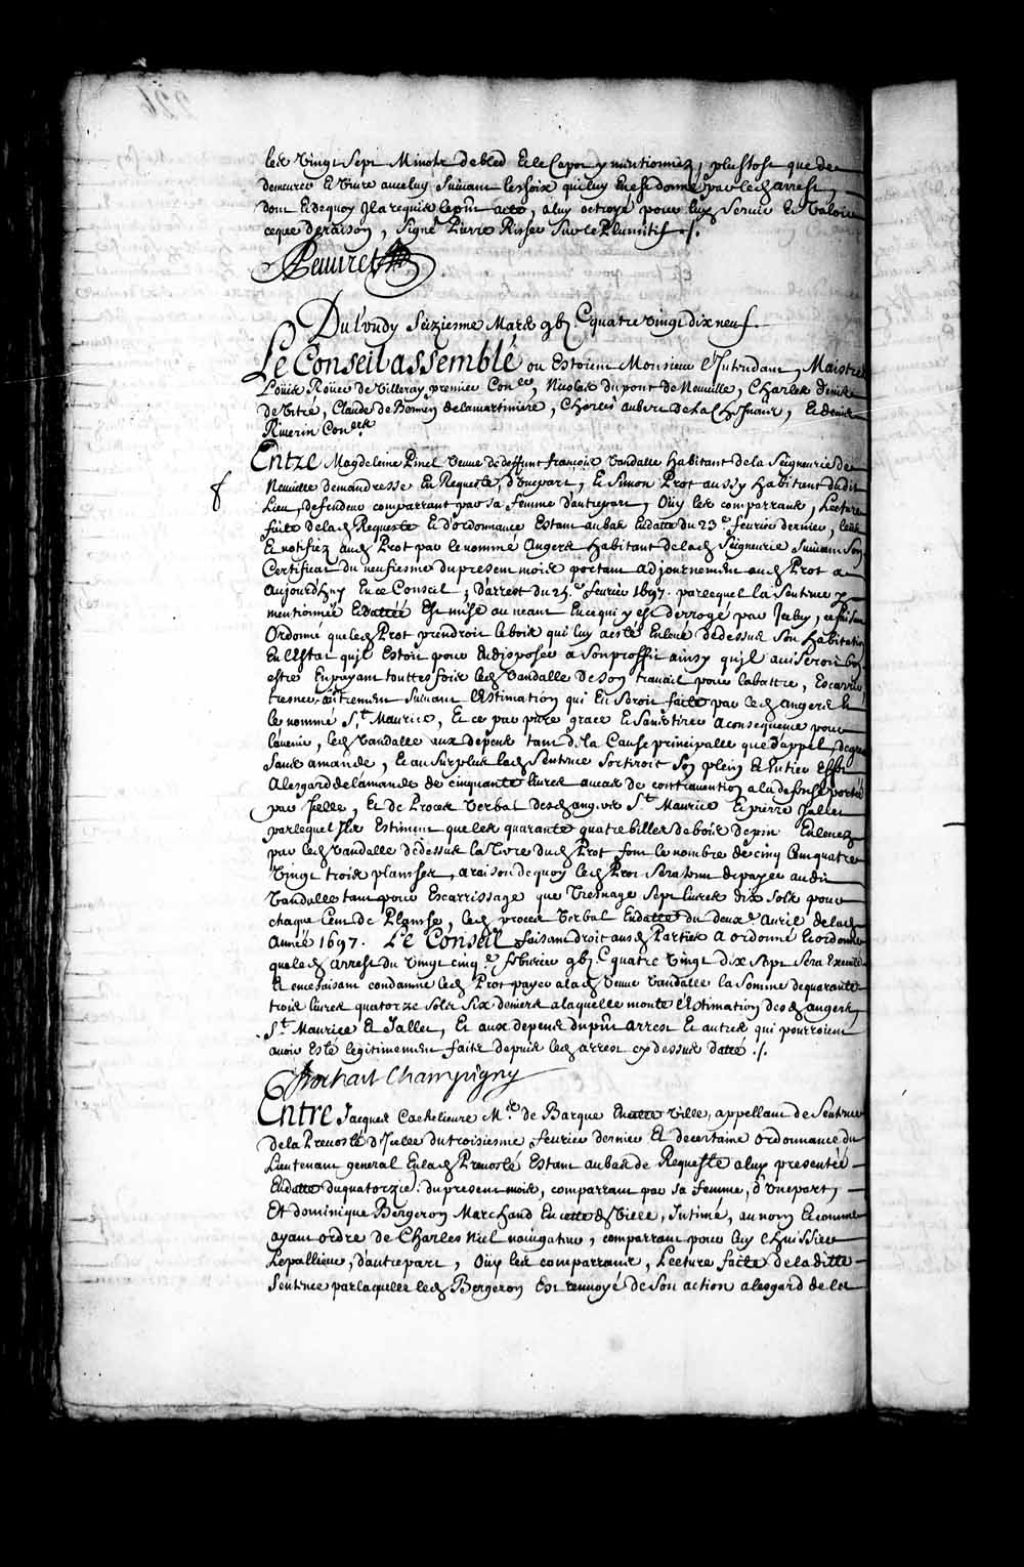 les vingt sept Minots de bled Et le Capot y mentionnez, plustost que de
demeurer Et vivre avec luy suivant le choix qui luy En est donné par led. arrest,
dont Et de quoy Il a requis le pnt acte, a luy octroyé pour luy servir Et valoir
ce que de raison, signé Pierre Risser sur le Plumitif ./.
Peuvret
Du Lundy Seiziesme Mars gbj.C quatre vingt dix neuf
Le Conseil assemblé ou Estoient Monsieur L'Intendant, Maistres
Loüis Roüer de Villeray premier Con.er, Nicolas dupont de Neuville, Charles denis
de Vitré, Claude de Bermen de la martiniere, Charles aubert de la Chesnaie, Et denis
Riverin Con.ers
Entre Magdeleine Pinel veuve de deffunt francois Vandalle habitant de la Seigneurie de
Neuville demandresse En Requeste, d'Une part, Et Simon Prot aussy habitant dudit
Lieu, defendeur comparant par sa femme d'autre part, Oüy les comparans, Lecture
faite de lad. Requeste Et d'ordonnance Estant au bas En datte du 23.e fevrier dernier, leüe
Et notifiée aud. Prot par le nommé Angers habitant de lad. Seigneurie suivant son
Certificat du neufiesme du present mois portant adjournement aud. Prot a
aujourd'huy En ce Conseil; D'arrest du 25.e fevrier 1697. par lequel la Sentence y
mentionnée Et dattée Est mise au neant En ce qui y est derrogé par Icelluy, ce faisant
Ordonné que led. Prot prendroit le bois qui luy a esté Enlevé de dessus son habitation
En L'Estat qu'il Estoit pour En disposer a son proffit ainsy qu'il aviseroit bon
estre En payant touttes fois led. Vandalle de son travail pour l'abattre, Escarrir
tresner et autrement suivant L'Estimation qui En seroit faite par led. Angers Et
le nommé S.t Maurice, Et ce par pure grace Et sans tirer a consequence pour
l'avenir, led. Vandalle aux depens tant de la Cause principalle que d'appel,
sans amande, Et au surplus lad. Sentence sortiroit son plein Et Entier Effet
A l'esgard de l'amande de cinquante livres au cas de contravention a la defense portée
par Icelle, Et de Proces verbal desd. angers S.t Maurice Et pierre Jallet
par lequel Ils Estiment que les quarante quatre billes de bois de pin Enlevez
par led. Vandalle de dessus la terre dud. Prot font le nombre de cinq Cent quatre
vingt trois planches, a raison de quoy led. Prot sera tenu de payer audit
Vandalle tant pour Escarrissage que tresnage sept livres dix sols pour
chaque Cent de Planche, led. proces verbal En datte du deux.e Avril de lad.
Année 1697. Le Conseil faisant droit ausd. Parties a ordonné Et ordonne
que led. arrest du vingt cinq.e febvrier gbj.C quatre vingt dix sept sera Executé
Et en ce faisant condamne led. Prot payer a lad. Veuve Vandalle la somme de quarante
trois livres quatorze sols six deniers a laquelle monte l'Estimation desd. angers,
S.t Maurice Et Jallet, Et aux depens du pnt arrest Et autres qui pourroient
avoir Esté legitimement faits depuis led. arrest cy dessus datté ./.
Bochart Champigny
Entre Jacques Cachelievre M.e de Barque En cette ville, appellant de Sentence
de la Prevosté d'Icelle du troisiesme fevrier dernier Et de certaine ordonnance du
Lieutenant general En lad. Prevosté Estant au bas de Requeste a luy presentée
En datte du quatorze.e du present mois, comparant par sa femme, d'Une part,
Et dominique Bergeron Marchand En cette d. ville, Intimé, au nom Et comme
ayant ordre de Charles Niel navigateur, comparant pour luy L'huissier
Lepallieur, d'autre part, Oüy les comparans, Lecture faite de la ditte
Sentence par laquelle led. Bergeron Est renvoyé de son action a l'esgard de la